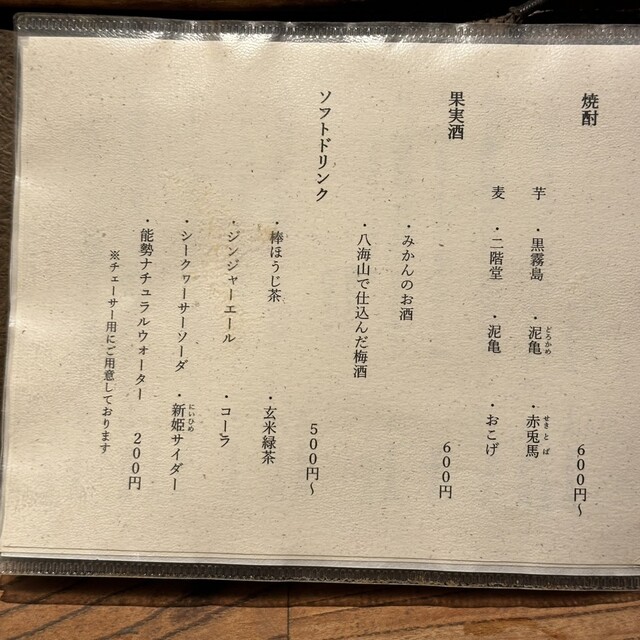 焼酎 600円～
芋 ・黒霧島 ・泥亀 ・赤兎馬
どろかめ
せきとば
麦 ・二階堂 ・泥亀 ・おこげ
果実酒 600円
・みかんのお酒
・八海山で仕込んだ梅酒
ソフトドリンク 500円～
・棒ほうじ茶 ・玄米緑茶
・ジンジャーエール ・コーラ
・シークヮーサーソーダ ・新姫サイダー
にいひめ
・能勢ナチュラルウォーター 200円
※チェーサー用にご用意しております